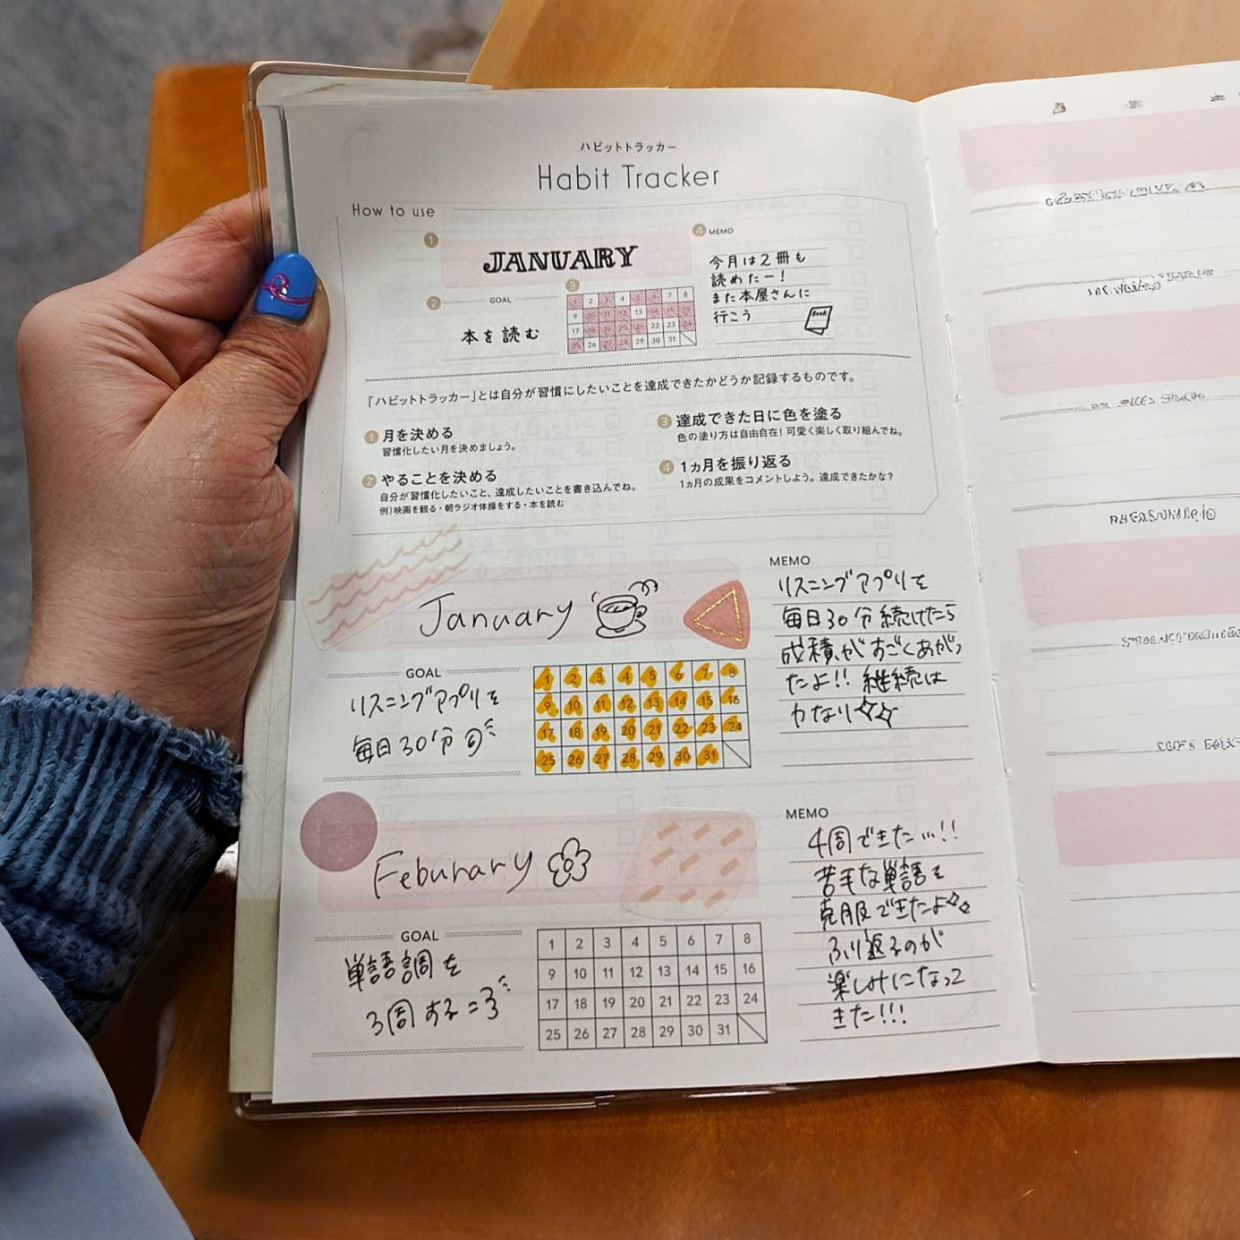 ハビットトラッカー
Habit Tracker
How to use
1
JANUARY
2
GOAL
本を読む
3
1 2 3 4 5 6 7 8
9 10 11 12 13 14 15 16
17 18 19 20 21 22 23 24
25 26 27 28 29 30 31
4 MEMO
今月は2冊も
読めたー!
また本屋さんに
行こう
Book
「ハビットトラッカー」とは自分が習慣にしたいことを達成できたかどうか記録するものです。
1 月を決める
習慣化したい月を決めましょう。
2 やることを決める
自分が習慣化したいこと、達成したいことを書き込んでね。
例)映画を観る・朝ラジオ体操をする・本を読む
3 達成できた日に色を塗る
色の塗り方は自由自在!可愛く楽しく取り組んでね。
4 1ヵ月を振り返る
1ヵ月の成果をコメントしよう。達成できたかな?
January
GOAL
リスニングアプリを
毎日30分
1 2 3 4 5 6 7 8
9 10 11 12 13 14 15 16
17 18 19 20 21 22 23 24
25 26 27 28 29 30 31
MEMO
リスニングアプリを
毎日30分続けたら
成積がすごくあがっ
たよ!! 継続は
力なり
Feburary
GOAL
単語調を
3周する
1 2 3 4 5 6 7 8
9 10 11 12 13 14 15 16
17 18 19 20 21 22 23 24
25 26 27 28 29 30 31
MEMO
4周できた…!!
苦手な単語を
克服できたよ
ふり返るのが
楽しみになって
きた!!!